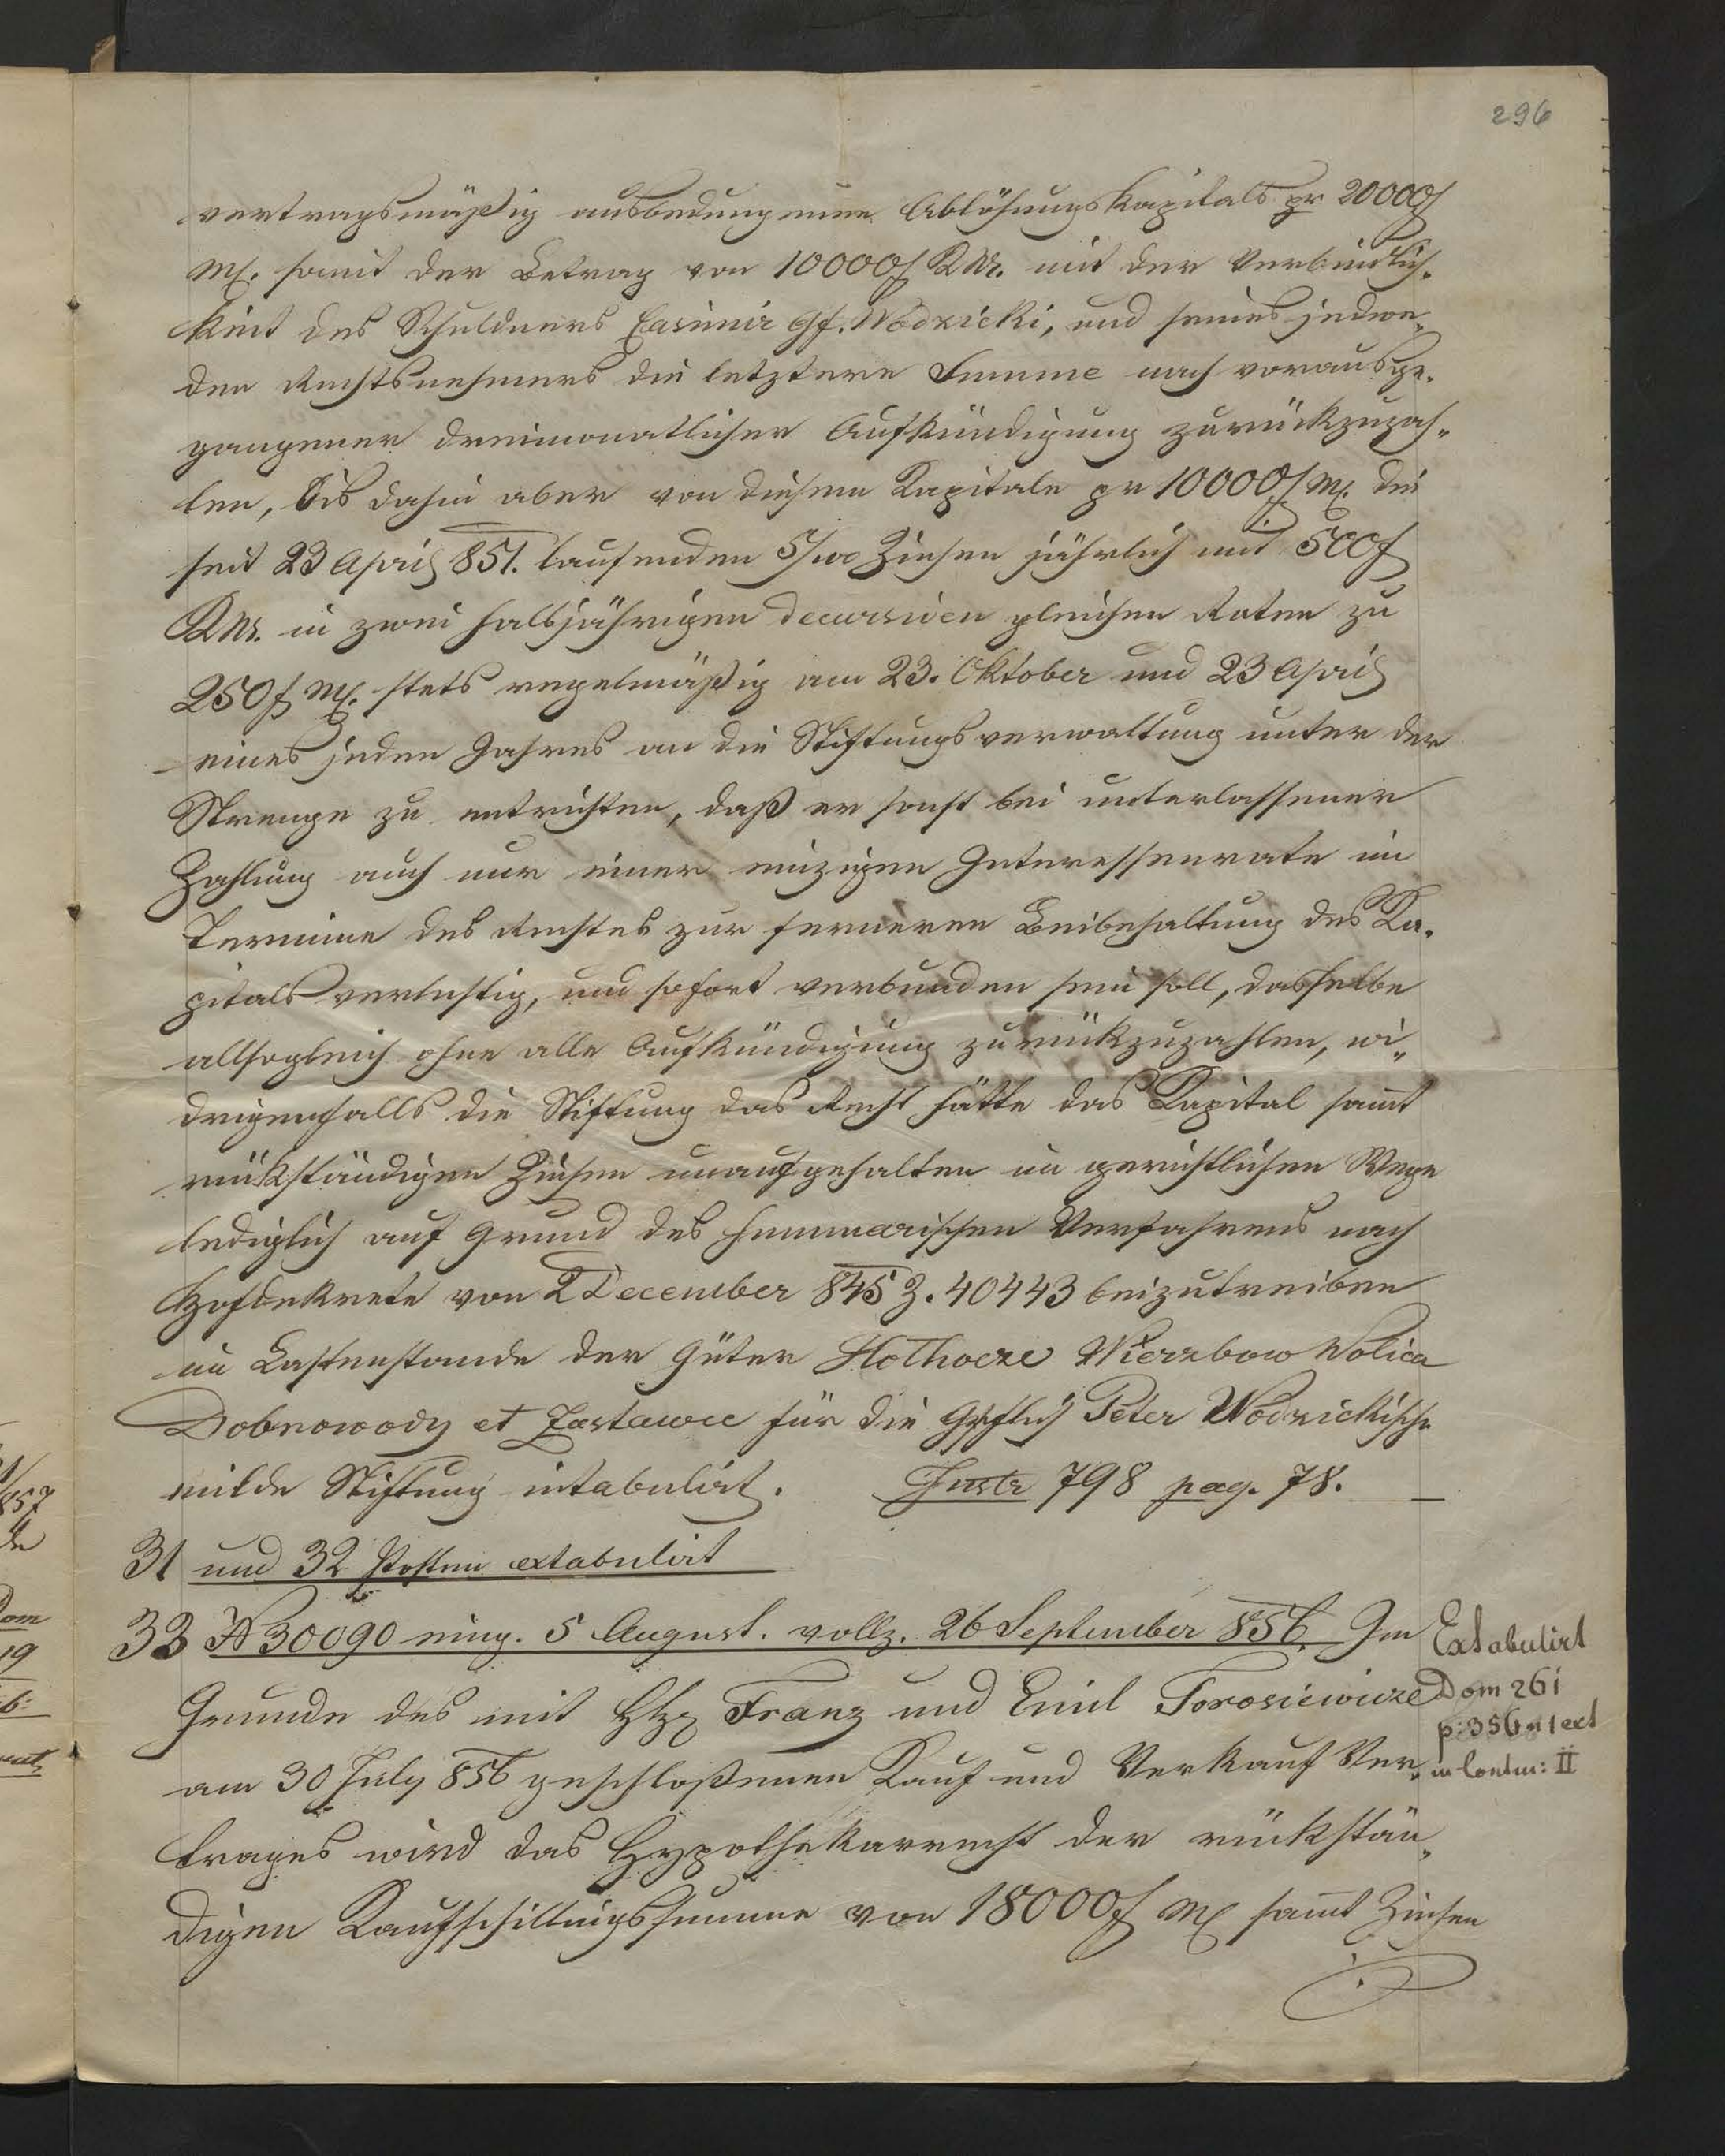 296
vertragsmäßig ausbedungenen Ablösungskapitals pr 20000f
Mz. somit der Betrag von 10000f KM. mit der Verbindlich-
keit des Schuldners Casimir Gf. Wodzicki, und seines jedwe„
den Rechtsnehmers die letztere Summe nach vorausge-
gangener dreimonatlicher Aufkündigung zurückzuzah„
len, bis dahin aber von diesem Kapitale pr 10000f Mz. die
seit 23 April 851. laufenden 5/100 Zinsen jährlich mit 500f
KM. in zwei halbjährigen decursiven gleichen Raten zu
250f Mz. stets regelmäßig am 23. Oktober und 23 April
eines jeden Jahres an die Stiftungsverwaltung unter der
Strenge zu entrichten, daß er sonst bei unterlassener
Zahlung auch nur einer einzigen Interessenrate im
Termine des Rechtes zur ferneren Beibehaltung des Ka-
pitals verlustig, und sofort verbunden sein soll, dasselbe
allsogleich ohne alle Aufkündigung zurückzuzahlen, wi„
drigenfalls die Stiftung das Recht hätte das Kapital samt
rückständigen Zinsen unaufgehalten im gerichtlichen Wege
lediglich auf Grund des summarischen Verfahrens nach
Hofdekrete von 2 December 845 Z. 40443 beizutreiben
im Lastenstande der Güter Hołhocze Wierzbow Wolica
Dobrowody et Zastawce für die Gräflich Peter Wodzickische
milde Stiftung intabulirt. Instr 798 pag. 78. —
31 und 32 Posten extabulirt
33 N 30090 eing. 5 August. vollz. 26 September 856. Im
Grunde des mit Franz und Emil Torosiewicze
am 30 July 856 geschloßenen Kauf und Verkauf Ver„
trages wird das Hypothekarrecht der rückstän„
digen Kaufschillingssumme von 18000f Mz samt Zinsen
Extabulirt
Dom 261
p: 356 n 1 ext
in Contin: II